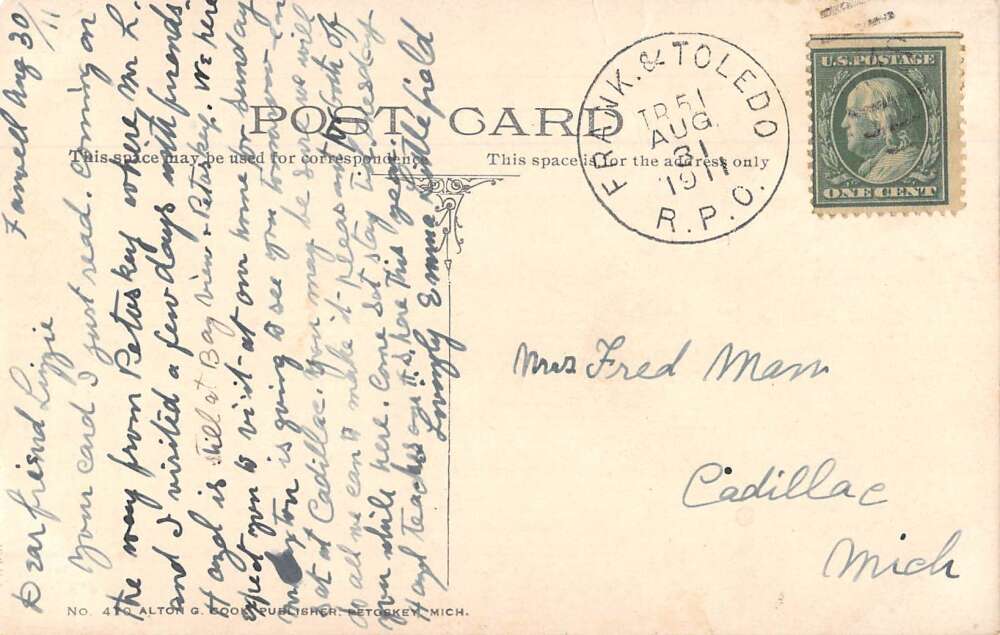 POST CARD
This space may be used for correspondence
This space is for the address only
U.S. POSTAGE
ONE CENT
FRANK. & TOLEDO
TR 51
AUG
31
1911
R.P.O.
Farwell Aug 30
11
Dear friend Lizzie
Your card I just read. Coming on
the way from Petoskey where Mr L.
and I visited a few days with friends.
Hazel is still at Bay View & Petoskey. We here
expect you to visit at our home for Sunday
is going to see you tomorrow
at Cadillac. You may be sure we will
do all we can to make it pleasant for both of
you while here. Come Sat stay till Wed if
Hazel teaches here this year.
Lovingly Emma Littlefield
Mrs Fred Mann
Cadillac
Mich
No. 470 ALTON G. COOK, PUBLISHER, PETOSKEY, MICH.